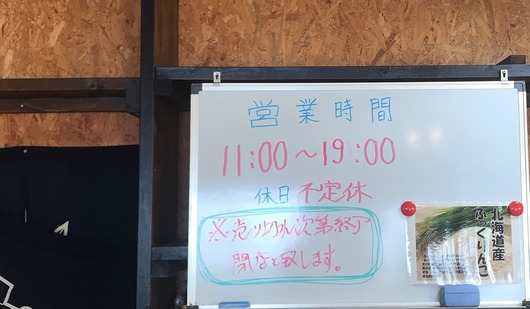 営業時間
11:00～19:00
休日 不定休
※売り切れ次第終了
閉店と致します。
北海道産
ふっくりんこ